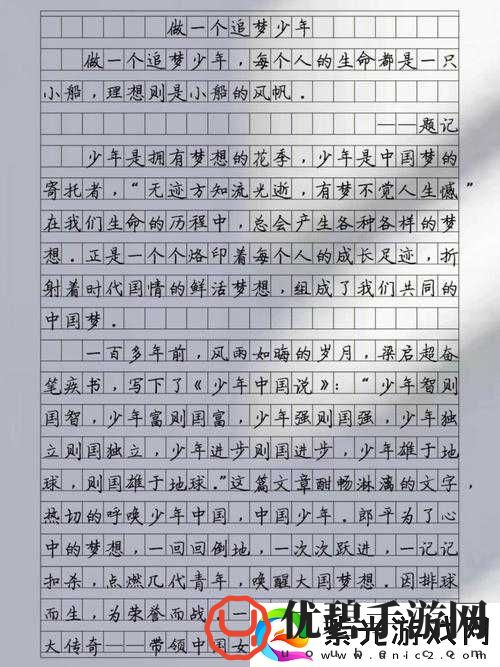 做一个追梦少年
做一个追梦少年，每个人的生命都是一只
小船，理想则是小船的风帆．
——题记
少年是拥有梦想的花季，少年是中国梦的
寄托者，“无迹方知流光逝，有梦不觉人生憾”
在我们生命的历程中，总会产生各种各样的梦
想．正是一个个烙印着每个人的成长足迹，折
射着时代国情的鲜活梦想，组成了我们共同的
中国梦．
一百多年前，风雨如晦的岁月，梁启超奋
笔疾书，写下了《少年中国说》：“少年智则
国智，少年富则国富，少年强则国强，少年独
立则国独立，少年进步则国进步，少年雄于地
球，则国雄于地球．”这篇文章酣畅淋漓的文字，
热切的呼唤少年中国，中国少年．郎平为了心
中的梦想，一回回倒地，一次次跃进，一记记
扣杀，点燃几代青年，唤醒大国梦想．因排球
而生，为荣誉而战．一
大传奇——带领中国女
优程手游网
紫光游戏网
www.unic2.com